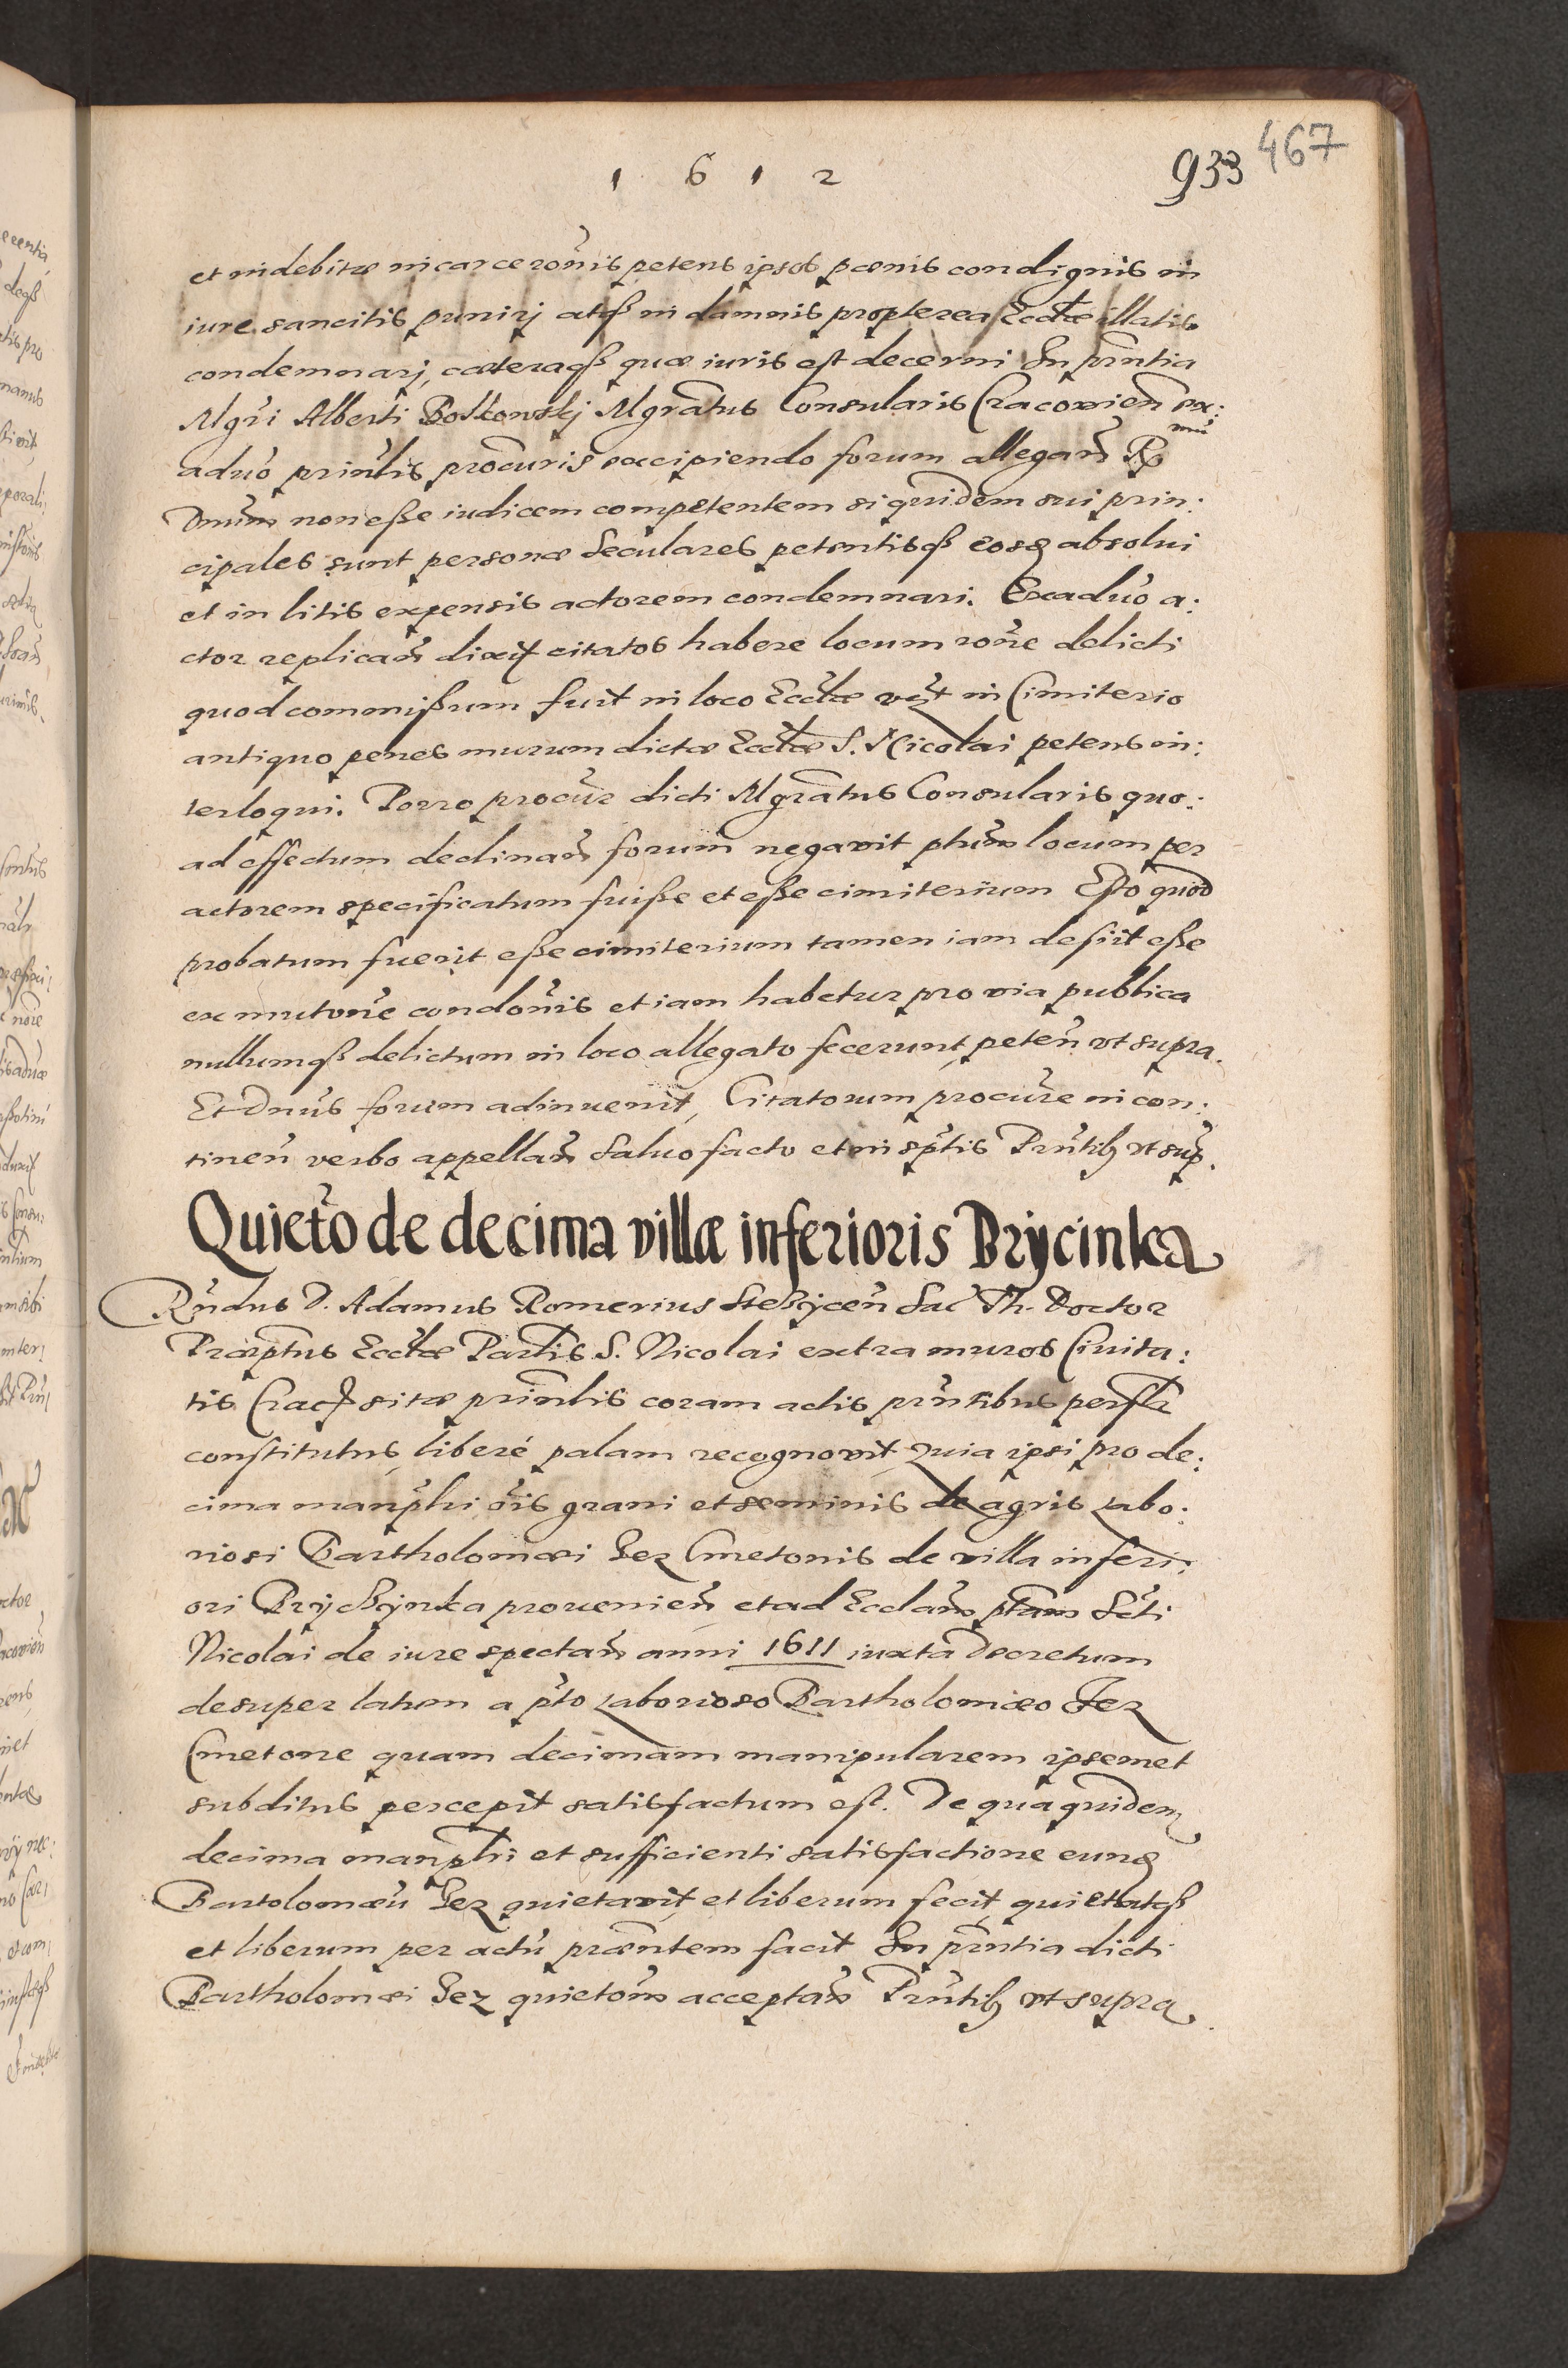 1612
933 467
et indebitæ incarceronis petens ipsos pœnis condignis in
iure sancitis punirj atqß in damnis propterea Ecctæ illatis
condemnarj, cæteraqß quæ iuris est decerni In pñtia
Mgri Alberti Boskowskj Mgratus Consularis Cracovien ex:
aduo prinlis procuris excipiendo forum allegañ R mũ
Dnum non eße iudicem competentem siquidem sui prin:
cipales sunt personæ Seculares petentisqß eosq absolui
et in litis expensis actorem condemnari. Ex aduo a:
ctor replicañ dixit citatos habere locum rone delicti
quod commißum fuit in loco Ecctæ vezt in Cimiterio
antiquo penes murum dictæ Ecctæ S. Nicolai petens in:
terloqui. Porro procur dicti Mgratus Consularis quo:
ad effectum declinañ forum negavit ptum locum per
actorem specificatum fuiße et eße cimiterium Esto quod
probatum fuerit eße cimiterium tamen iam desiit eße
ex mutone condonis et iam habetur pro via publica
nullumqß delictum in loco allegato fecerunt, peteñ vt supra.
Et Dnus forum adinuenit, Citatorum procure in con:
tineñ verbo appellañ Saluo facto et in sptis Pñtib vt sup.
Quieto de decima villæ inferioris Brzycinka
Rñdus D. Adamus Romerius Stężycen Sac Th. Doctor
Præptus Ecctæ Partis S. Nicolai extra muros Ciuita:
tis Crac sitæ prinlis coram actis pñtibus persltr
constitutus liberé palam recognovit quia ipsi pro de:
cima manplri ois grani et seminis de agris labo:
riosi Bartholomæi Jez Cmetonis de villa inferi:
ori Brzyczynka provenieñ et ad Ecclam ptam Scti
Nicolai de iure spectañ anni 1611 iuxta Decretum
desuper latum a pto laborioso Bartholomæo Jez
Cmetone quam decimam manipularem ipsemet
subditus percepit satisfactum est. De qua quidem
decima manplri et sufficienti satisfactione eunq
Bartolomæũ Jez quietavit et liberum fecit quietatqß
et liberum per actũ præntem facit In pñtia dicti
Bartholomæi Jez quietonem acceptañ Pñtib vt supra.